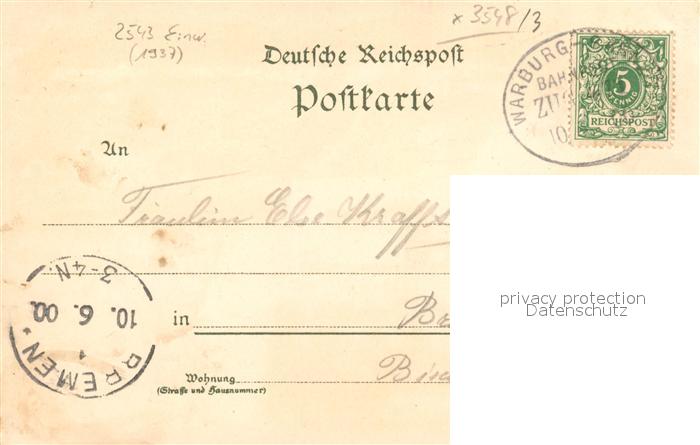 2543 Einw.
(1937)
x 3548/3
Deutsche Reichspost
Postkarte
WARBURG-
BAHNPOST
ZUG
10.
5
PFENNIG
REICHSPOST
An
Fräulein Else Kraffs
in Br
Wohnung Bis
(Straße und Hausnummer)
BREMEN * 1
10. 6. 00.
3-4N.
privacy protection
Datenschutz